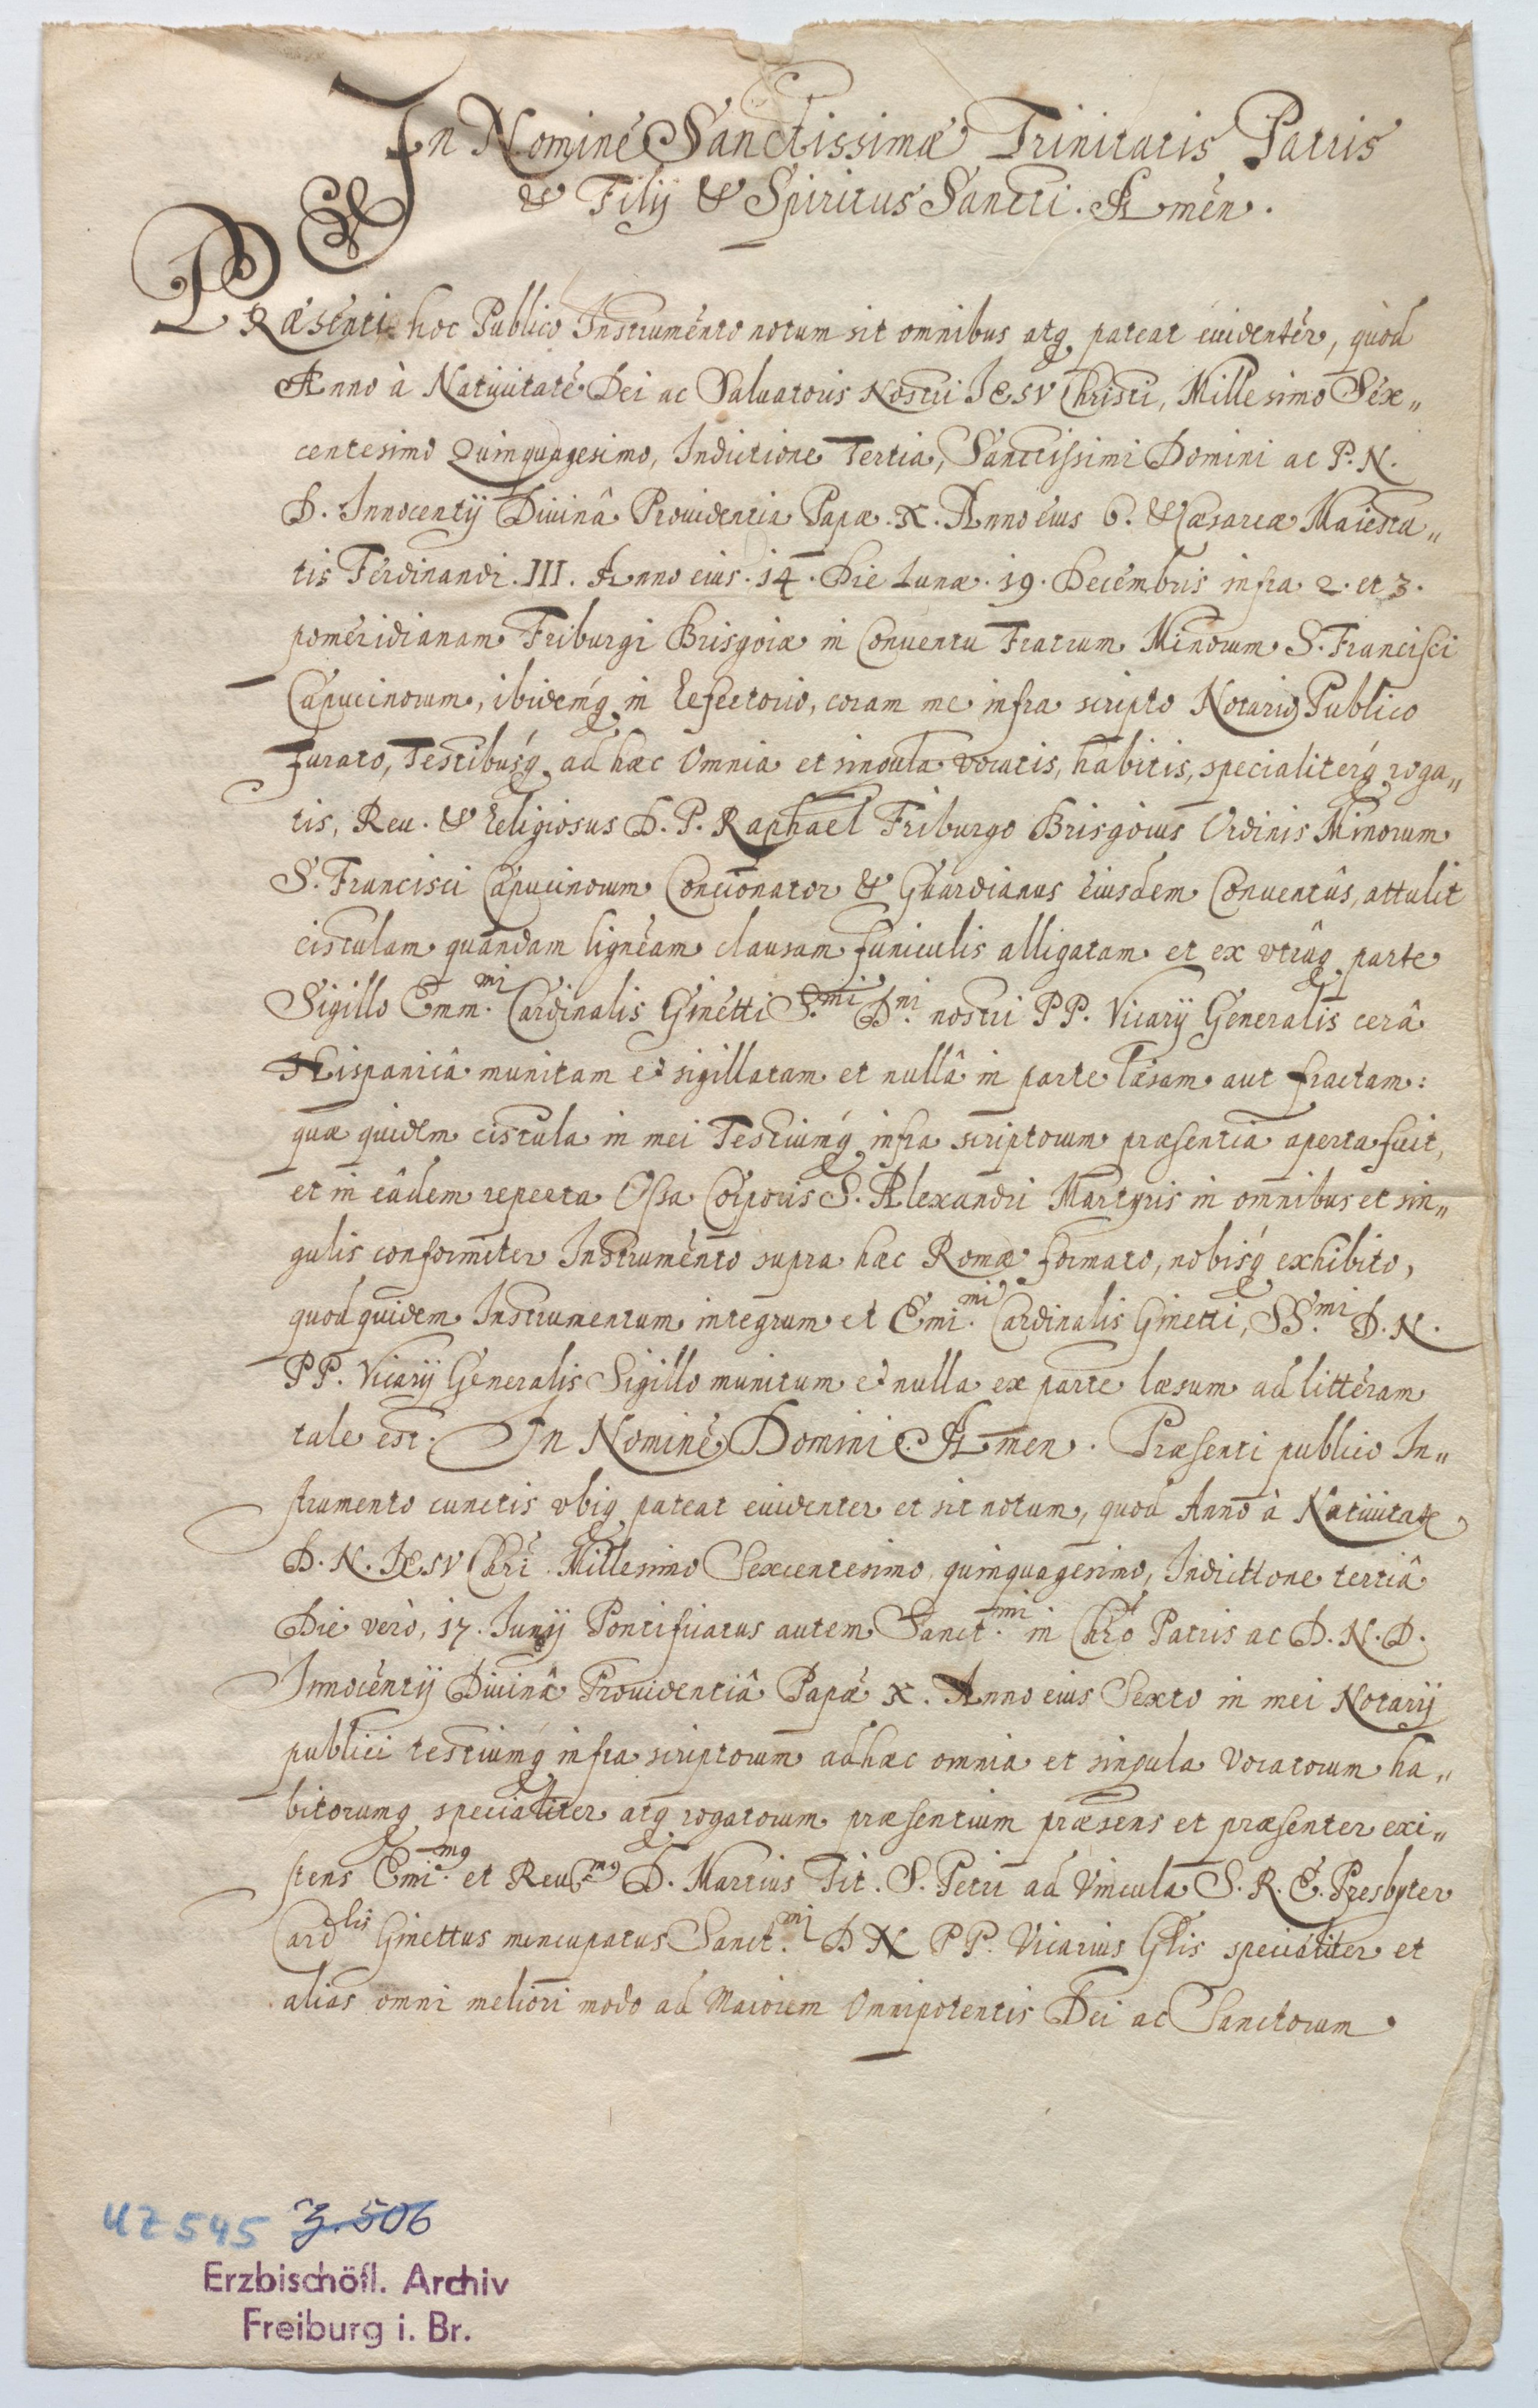 In Nomine Sanctissimæ Trinitatis Patris
& Filij & Spiritus Sancti. Amen.
PRæsenti hoc Publico Instrumento notum sit omnibus atq pateat euidenter, quòd
Anno à Natiuitate Dei ac Saluatoris Nostri IESV Christi, Millesimo Sex„
centesimo Quinquagesimo, Indictione Tertia, Sanctissimi Domini ac P. N.
D. Innocentij Diuinâ Prouidentia Papæ. X. Anno eius 6. & Cæsareæ Maiesta„
tis Ferdinandi. III. Anno eius. 14. Die Lunæ. 19. Decembris infra 2. et 3.
pomeridianam Friburgi Brisgoiæ in Conuentu Fratrum Minorum S. Francisci
Capucinorum, ibidemq́ in Refectorio, coram me infra scripto Notario Publico
Iurato, Testibusq́ ad hæc Omnia et singula vocatis, habitis, specialiterq́ roga„
tis, Reu. & Religiosus D. P. Raphaël Friburgo Brisgoius Ordinis Minorum
S. Francisci Capucinorum Concionator & Guardianus eiusdem Conuentûs, attulit
cistulam quandam ligneam clausam funiculis alligatam et ex vtrâq parte
Sigillo Emm.mi Cardinalis Ginetti S.mi D.ni nostri PP. Vicarij Generalis cerâ
Hispanicâ munitam et sigillatam et nullâ in parte læsam aut fractam:
quæ quidem cistula in mei Testiumq́ infra scriptorum præsentia aperta fuit,
et in eâdem reperta Ossa Corporis S. Alexandri Martyris in omnibus et sin„
gulis conformiter Instrumento supra hæc Romæ formato, nobisq́ exhibito,
quod quidem Instrumentum integrum et Emi.mi Cardinalis Ginetti, SS.mi D. N.
PP. Vicarij Generalis Sigillo munitum et nulla ex parte læsum ad litteram
tale est. In Nomine Domini Amen. Præsenti publico In„
strumento cunctis vbiq pateat euidenter et sit notum, quod Anno à Natiuitate
D. N. IESV Chri Millesimo Sexcentesimo, quinquagesimo, Indictione tertiâ
Die verò, 17. Junij Pontificatus autem Sanct.mi in Chro Patris ac D. N. D.
Innocentij Diuinâ Prouidentiâ Papæ X. Anno eius Sexto in mei Notarij
publici testiumq́ infra scriptorum ad hæc omnia et singula vocatorum ha„
bitorumq specialiter atq rogatorum præsentium præsens et præsenter exi„
stens Emi.mq et Reu.mq D. Martius Tit. S. Petri ad Vincula S. R. E. Presbyter
Card.lis Ginettus nuncupatus Sanct.mi D N PP. Vicarius Glis specialiter et
alias omni meliori modo ad Maiorem Omnipotentis Dei ac Sanctorum
UZ 545 3.506
Erzbischöfl. Archiv
Freiburg i. Br.